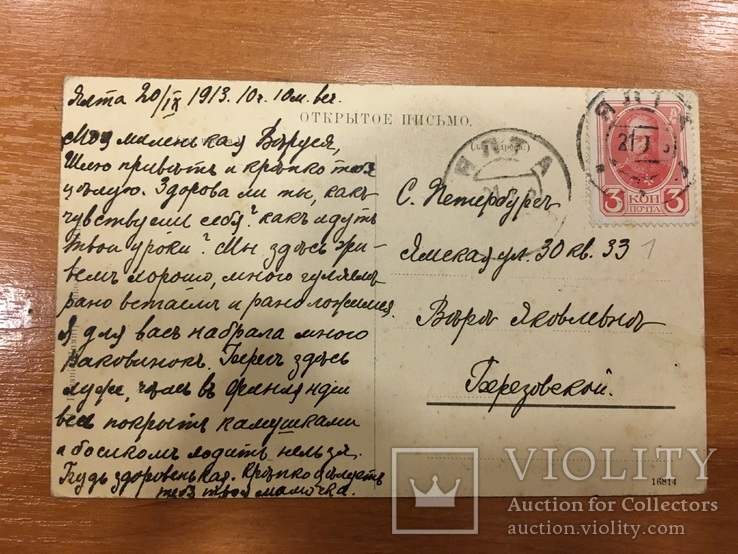 Ялта 20/IX 1913. 10ч. 10м. веч.
ОТКРЫТОЕ ПИСЬМО.
Моя маленькая Вѣруся,
Шлю привѣтъ и крѣпко тебя
цѣлую. Здорова ли ты, какъ
чувствуешь себя? какъ идутъ
твои уроки? Мы здѣсь жи-
вемъ хорошо, много гуляемъ
рано встаемъ и рано ложимся.
Я для васъ набрала много
раковинокъ. Берегъ здѣсь
хуже, чѣмъ въ Финляндіи
весь покрытъ камушками
и босикомъ ходить нельзя.
Будь здоровенькая. Крѣпко цѣлуетъ
тебя твоя мамочка.
С. Петербургъ
Ямская ул. 30 кв. 33
1
Вѣрѣ Яковлевнѣ
Березовской.
ЯЛТА
21
ЯЛТА
21
3 КОП 3
ПОЧТА
16814
VIOLITY
Auction for Collectors
auction.violity.com